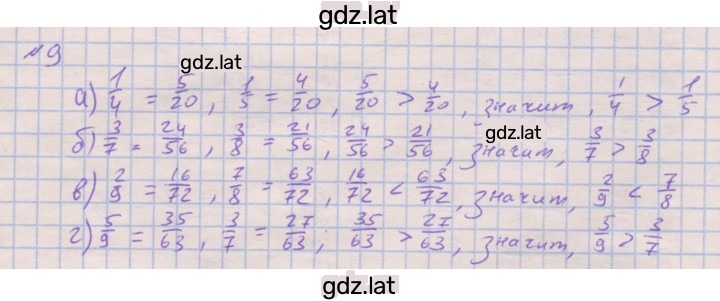 gdz.lat
№9
gdz.lat
а) 1/4 = 5/20, 1/5 = 4/20, 5/20 > 4/20, значит, 1/4 > 1/5
б) 3/7 = 24/56, 3/8 = 21/56, 24/56 > 21/56, значит, 3/7 > 3/8
gdz.lat
в) 2/9 = 16/72, 7/8 = 63/72, 16/72 < 63/72, значит, 2/9 < 7/8
г) 5/9 = 35/63, 3/7 = 27/63, 35/63 > 27/63, значит, 5/9 > 3/7
gdz.lat